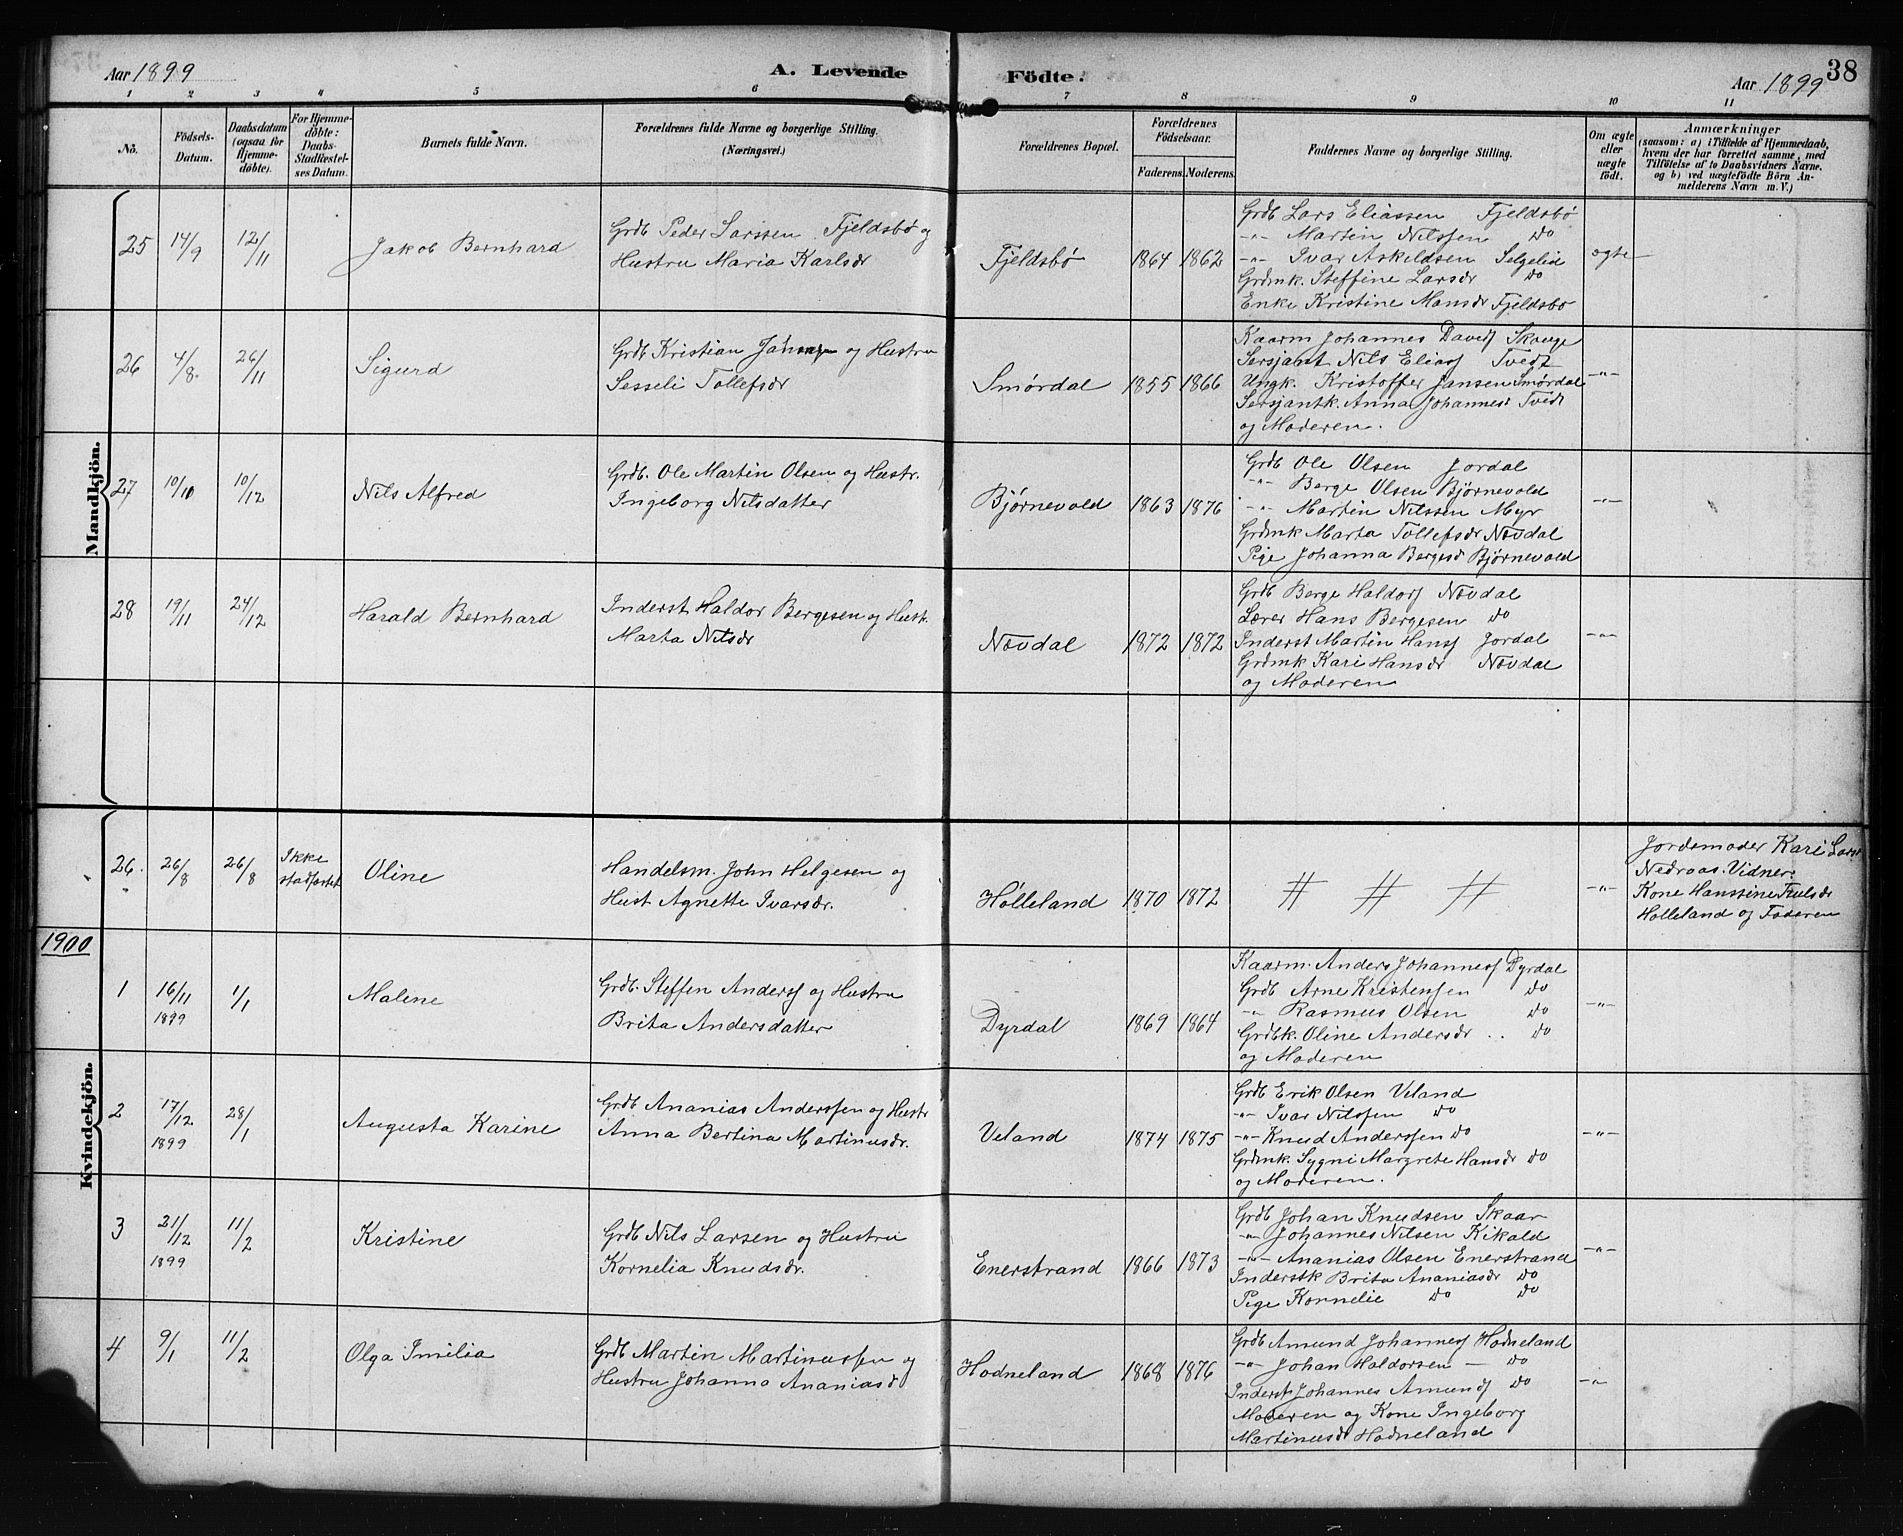 Aar 1899
A. Levende Födte.
Aar 1899
38
1 2 3 4 5 6 7 8 9 10 11
No.
Födsels-Datum.
Daabsdatum (ogsaa for Hjemme-döbte).
For Hjemme-döbte: Daabs-Stadfæstel-ses Datum.
Barnets fulde Navn.
Forældrenes fulde Navne og borgerlige Stilling. (Næringsvei.)
Forældrenes Bopæl.
Forældrenes Födselsaar.
Faderens. Moderens.
Faddernes Navne og borgerlige Stilling.
Om ægte eller uægte födt.
Anmærkninger
(saasom: a) i Tilfælde af Hjemmedaab,
hvem der har forrettet samme, med
Tilföielse af to Daabsvidners Navne,
og b) ved uægtefödte Börn An-
melderens Navn m. V.)
Mandkjön.
25 14/9 12/11 Jakob Bernhard
Grdb Peder Larssen Fjeldsbø og
Hustru Maria Karlsdr
Fjeldsbø 1864 1862
Grdb Lars Eliassen Fjeldsbø
-"- Martin Nilssen Do
-"- Ivar Askildsen Selgelid
Grdmk. Steffine Larsdr Do
Enke Kristine Mansdr Fjeldsbø
ægte
26 4/8 26/11 Sigurd
Grdb Kristian Jansen og Hustru
Sesseli Tollefsdr
Smørdal 1855 1866
Kaarm Johannes Davids Skauge
Sersjant Nils Elias Tvedt
Ungk. Kristoffer Jansen Smørdal
Sersjantk. Anna Johannesd Tvedt
og Moderen.
-"-
27 10/10 10/12 Nils Alfred
Grdb. Ole Martin Olsen og Hustr.
Ingeborg Nilsdatter
Bjørnevold 1863 1876
Grdb Ole Olsen Jordal
-"- Berge Olsen Bjørnevold
-"- Martin Nilssen Myr
Grdmk Marta Tollefsdr Nøvdal
Pige Johanna Bergesd Bjørnevold
-"-
28 19/11 24/12 Harald Bernhard
Inderst Haldor Bergesen og Hust.
Marta Nilsdr
Nøvdal 1872 1872
Grdb Berge Haldors Nøvdal
Lærer Hans Bergesen Do
Inderst Martin Hans Jordal
Grdmk Kari Hansdr Nøvdal
og Moderen
-"-
Kvindekjön.
26. 26/8 26/8 Ikke stadfæstet Oline
Handelsm. John Helgesen og
Hust Agnette Ivarsdr.
Hølleland 1870 1872
-"-
Jordemoder Kari Lars
Nedraas. Vidner:
Kone Hanstine
Hølleland og Faderen
1900
1 16/11 1899 1/1 Malene
Grdb. Steffen Anders og Hustru
Brita Andersdatter
Dyrdal 1869 1864
Kaarm. Anders Johannes Dyrdal
Grdb Arne Kristensen Do
-"- Rasmus Olsen Do
Grdbk. Oline Andersdr .. Do
og Moderen
-"-
2 17/12 1899 28/1 Augusta Karine
Grdb Ananias Anderssen og Hustr
Anna Bertina Martinusdr.
Veland 1874 1875
Grdb Erik Olsen Veland
-"- Ivar Nilssen Do
-"- Knud Anderssen Do
Grdmk. Sygni Margrete Hansdr Do
og Moderen.
-"-
3 21/12 1899 11/2 Kristine
Grdb Nils Larsen og Hustru
Kornelia Knudsdr.
Enerstrand 1866 1873
Grdb Johan Knudsen Skaar
-"- Johannes Nilsen Kikald
-"- Ananias Olsen Enerstrand
Inderstk Brita Ananiasdr Do
Pige Kornelie Do Do
-"-
4 9/1 11/2 Olga Imilia
Grdb Martin Martinussen og
Hustru Johanna Ananiasd
Hodneland 1868 1876
Grdb Amund Johannes Hodneland
-"- Johan Haldorsen — Do
Inderst Johannes Amund Do
Moderen og Kone Ingeborg
Martinusdr Hodneland
-"-